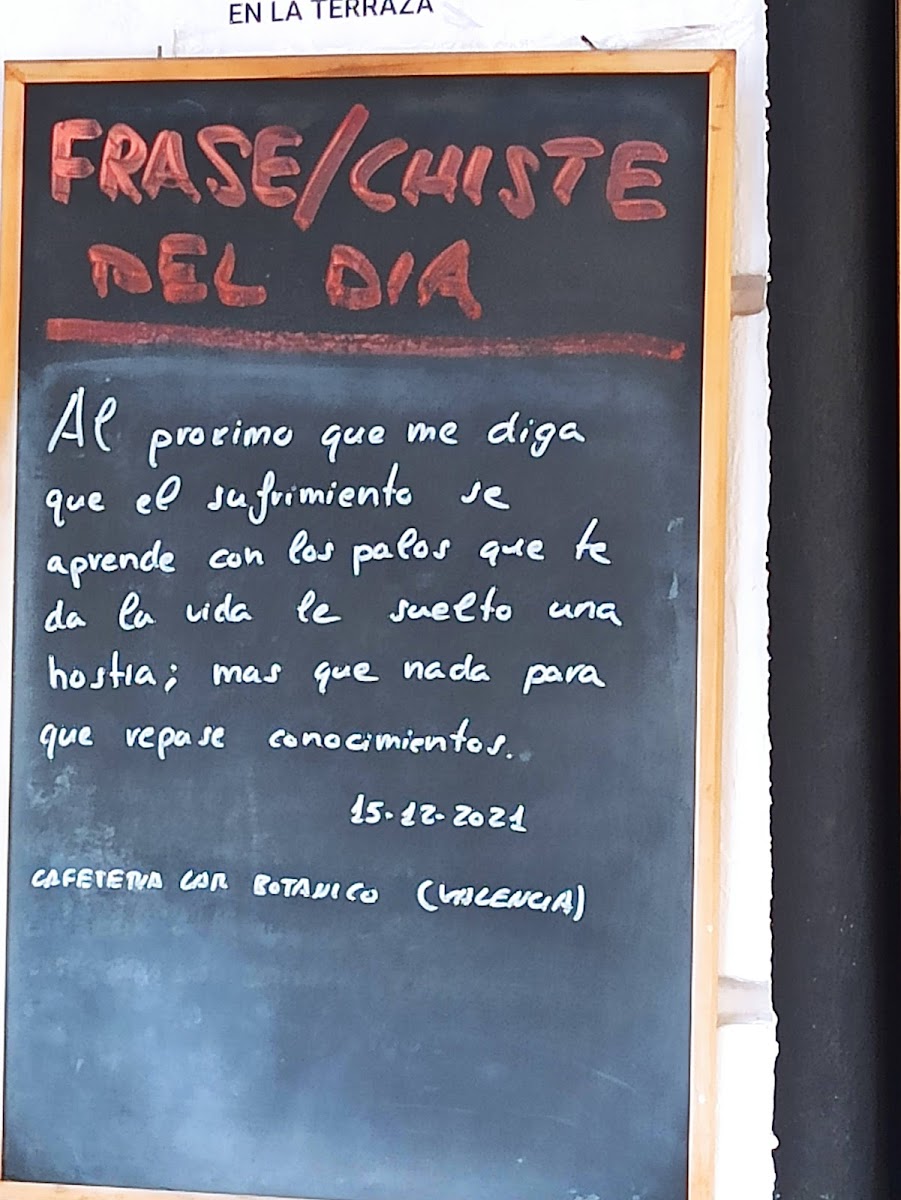 EN LA TERRAZA
FRASE/CHISTE
DEL DIA
Al proximo que me diga
que el sufrimiento se
aprende con los palos que te
da la vida le suelto una
hostia; mas que nada para
que repase conocimientos.
15-12-2021
BOTANICO (VALENCIA)